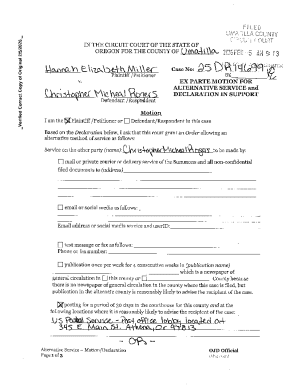 FILED
UMATILLA COUNTY
CIRCUIT COURT
IN THE CIRCUIT COURT OF THE STATE OF
OREGON FOR THE COUNTY OF Umatilla
Hannah Elizabeth Miller
Plaintiff / Petitioner
v.
Christopher Micheal Rogers
Defendant / Respondent
Case No:
EX PARTE MOTION FOR
ALTERNATIVE SERVICE and
DECLARATION IN SUPPORT
Motion
I am the Plaintiff/Petitioner or Defendant/Respondent in this case
Based on the Declaration below, I ask that this court grant an Order allowing an
alternative method of service as follows:
Service on the other party (name) Christopher Micheal Rogers to be made by:
mail or private courier or delivery service of the Summons and all non-confidential
filed documents to (address)
email or social media as follows:
Email address or social media service and userID:
text message or fax as follows:
Phone or fax number:
publication once per week for 4 consecutive weeks in (publication name)
which is a newspaper of
general circulation in this county or County because
there is no newspaper of general circulation in the county where this case is filed, but
publication in the alternative is reasonably likely to advise the recipient of the case.
posting for a period of 30 days in the courthouse for this county and at the
following locations where it is reasonably likely to advise the recipient of the case:
US Postal Service - Post office lobby located at
345 E Main St. Athena, Or 97813
- OR -
Alternative Service – Motion/Declaration
OJD Official
Verified Correct Copy of Original